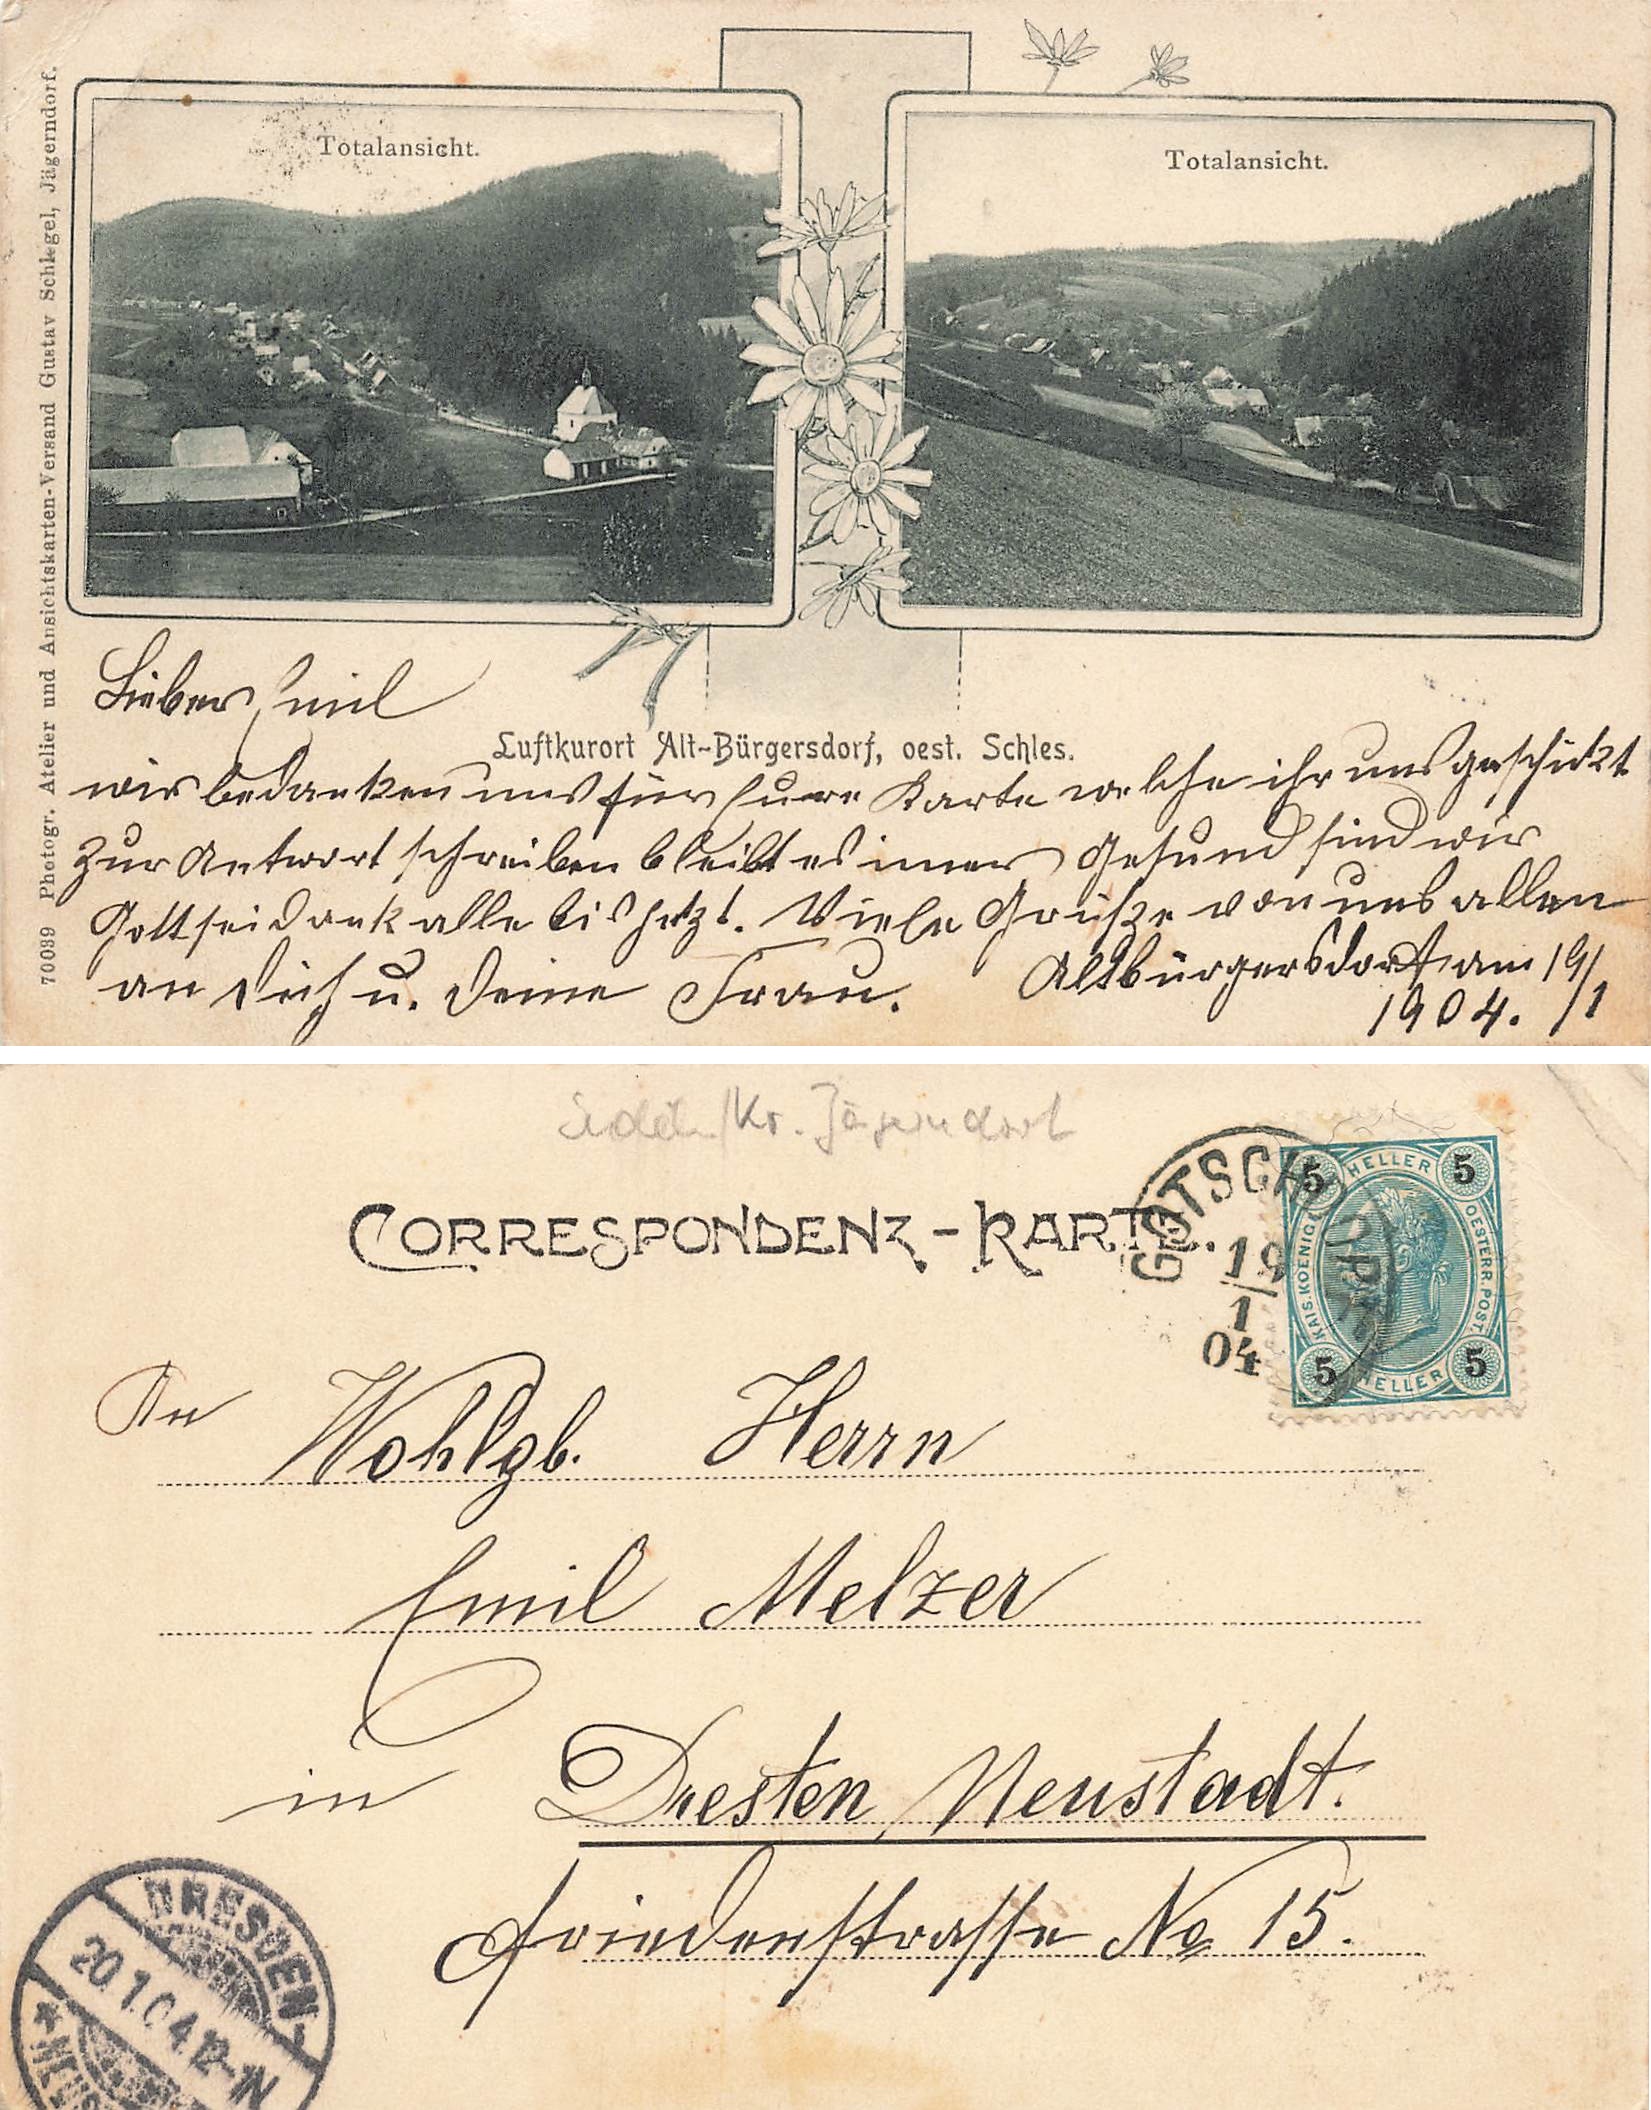 Totalansicht.
Totalansicht.
70089 Photogr. Atelier und Ansichtskarten-Versand Gustav Schlegel, Jägerndorf.
Lieber Emil
Luftkurort Alt-Bürgersdorf, oest. Schles.
wir bedanken uns für Euere Karte welche ihr uns geschickt
Zur Antwort schreiben bleibt es imer Gesund sind wir
Gott sei dank alle bis jetzt. Viele Grüße von uns allen
an Dich u. Deine Frau. Altbürgersdorf am 19/1
1904.
/Kr. Jägerndorf
CORRESPONDENZ-KARTE.
GOTSCHDORF
19
1
04
5 HELLER 5
KAIS. KOENIGL. OESTERR. POST.
5 HELLER 5
An Wohlgb. Herrn
Emil Melzer
in Dresten Neustadt.
Friedenstrasse No 15.
DRESDEN-
20.1.04.12-1N
*NEUS